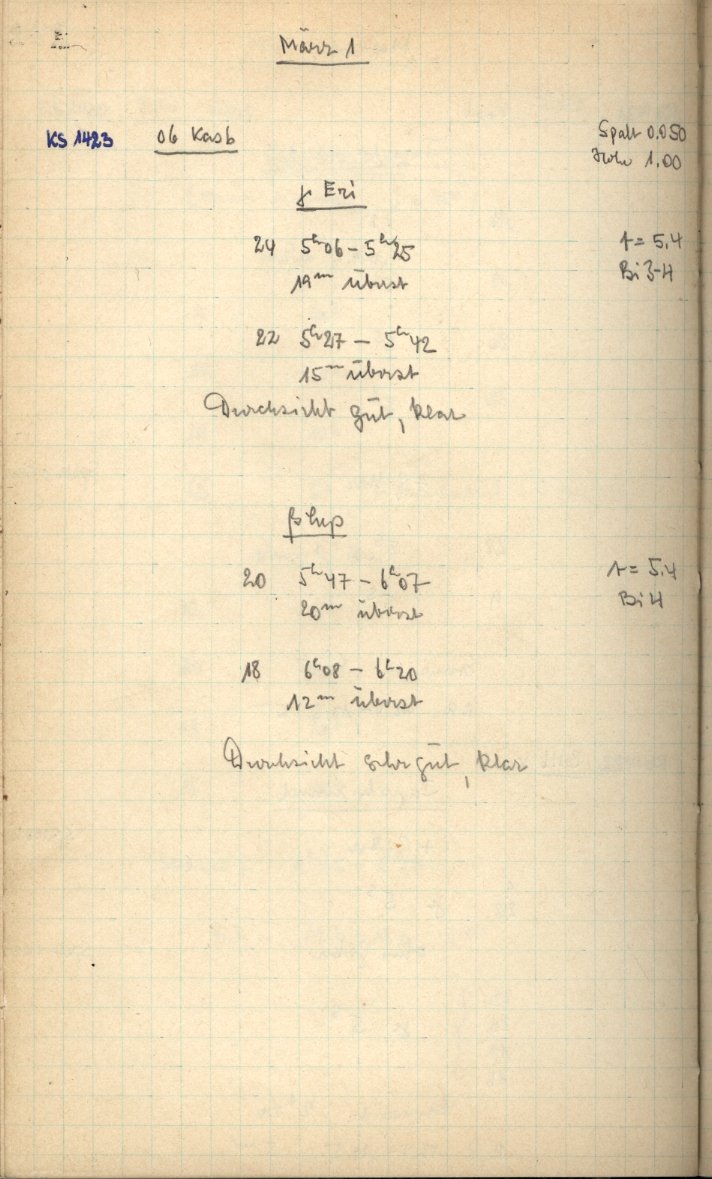 März 1
KS 1423 06 Kasb Spalt 0.050
Höhe 1,00
γ Eri
24 5ʰ06 – 5ʰ25 t = 5,4
19ᵐ überst Bi 3-4
22 5ʰ27 – 5ʰ42
15ᵐ überst
Durchsicht gut, klar
β Lep
20 5ʰ47 – 6ʰ07 t = 5,4
20ᵐ überst Bi 4
18 6ʰ08 – 6ʰ20
12ᵐ überst
Durchsicht sehr gut, klar